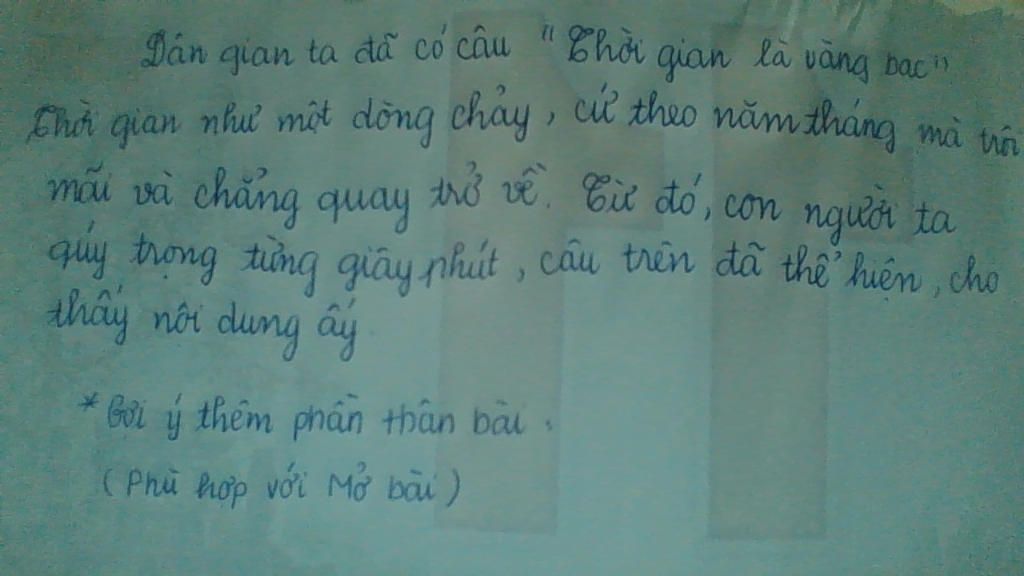 Dân gian ta đã có câu "Thời gian là vàng bạc"
Thời gian như một dòng chảy, cứ theo năm tháng mà trôi
mãi và chẳng quay trở về. Từ đó, con người ta
quý trọng từng giây phút, câu trên đã thể hiện, cho
thấy nội dung ấy
* Gợi ý thêm phần thân bài.
(Phù hợp với Mở bài)